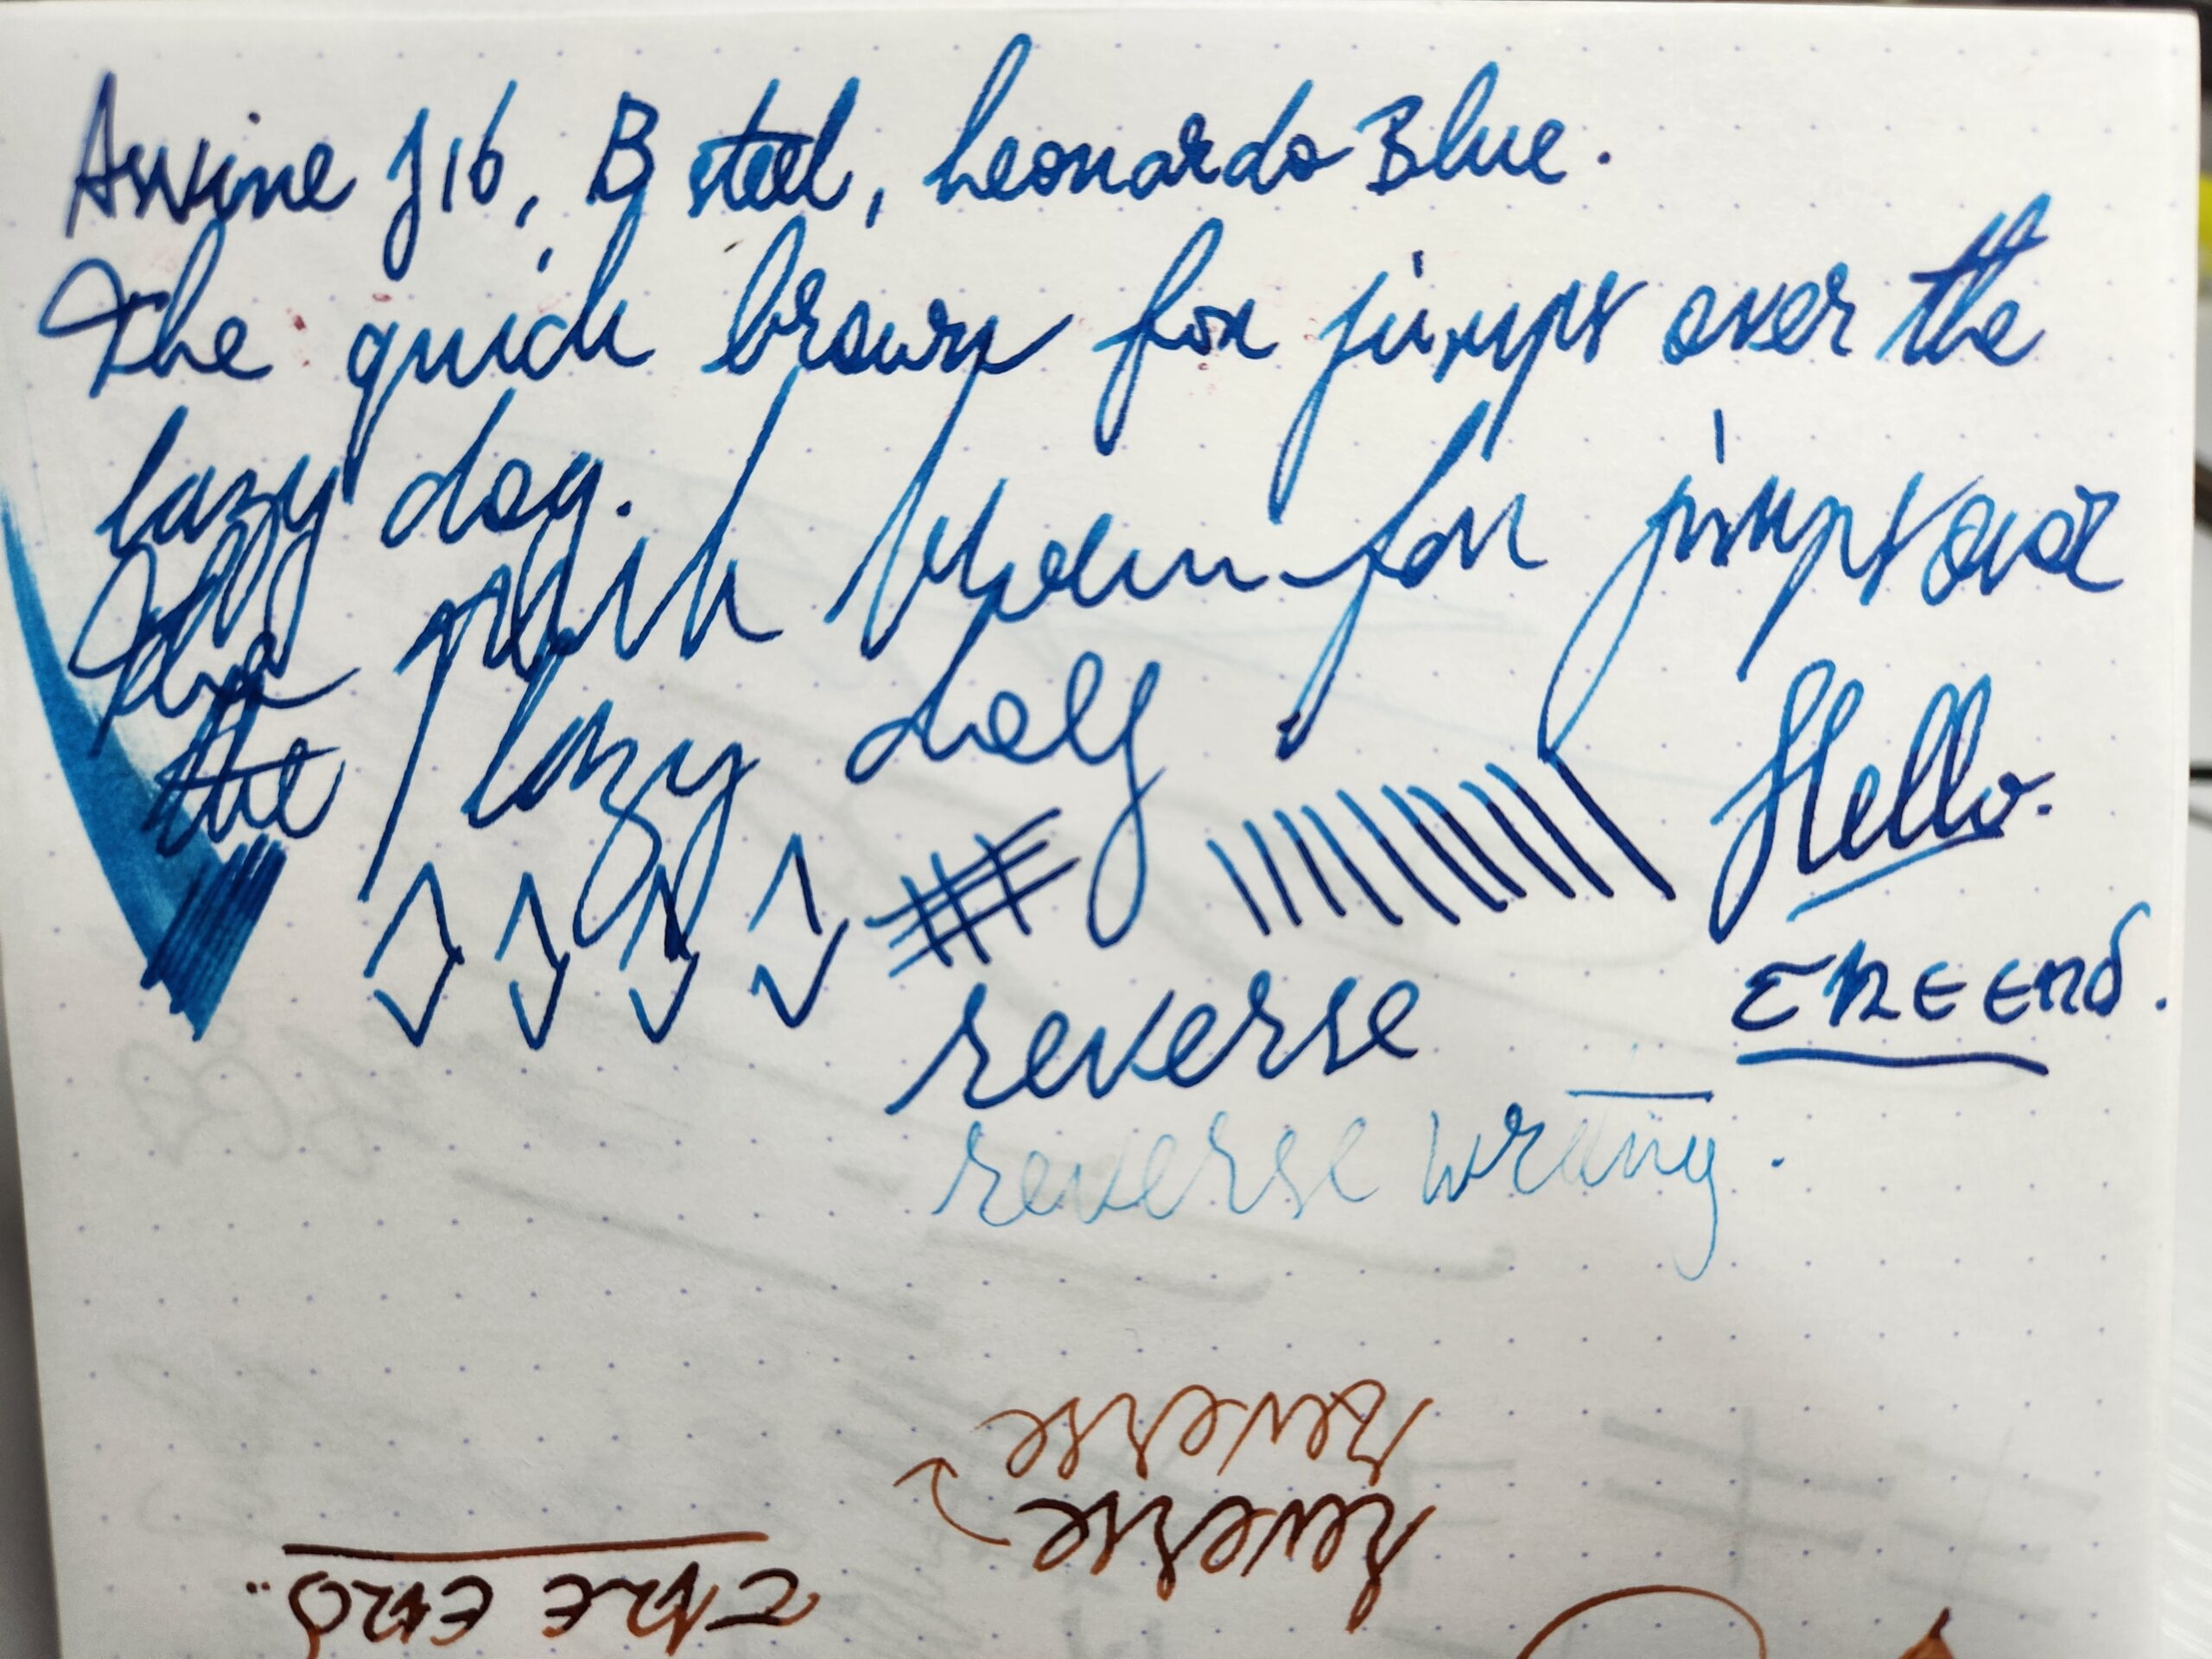 Asvine J16, B steel, Leonardo Blue.
The quick brown fox jumps over the
lazy dog.
The quick brown fox jumps over
the lazy dog
Hello.
The End.
reverse
reverse writing.
Reverse
Reverse
The End..